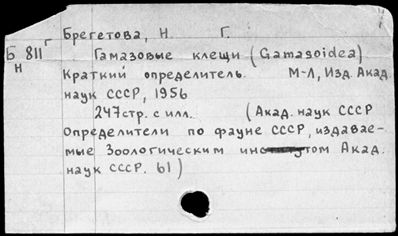 Брегетова, Н. Г.
Б 811 г
н
Гамазовые клещи (Gamasoidea)
Краткий определитель. М-Л, Изд. Акад.
наук СССР, 1956
247 стр. с илл. (Акад. наук СССР
Определители по фауне СССР, издавае-
мые Зоологическим институтом Акад.
наук СССР. 61)